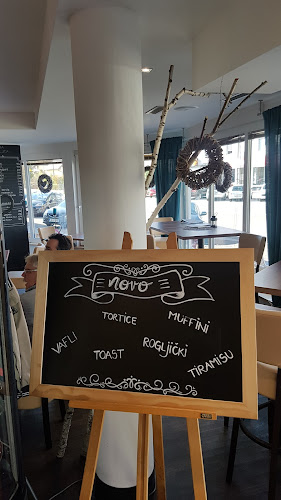 novo
TORTICE
MUFFINI
VAFLI
TOAST
ROGLJIČKI
TIRAMISU